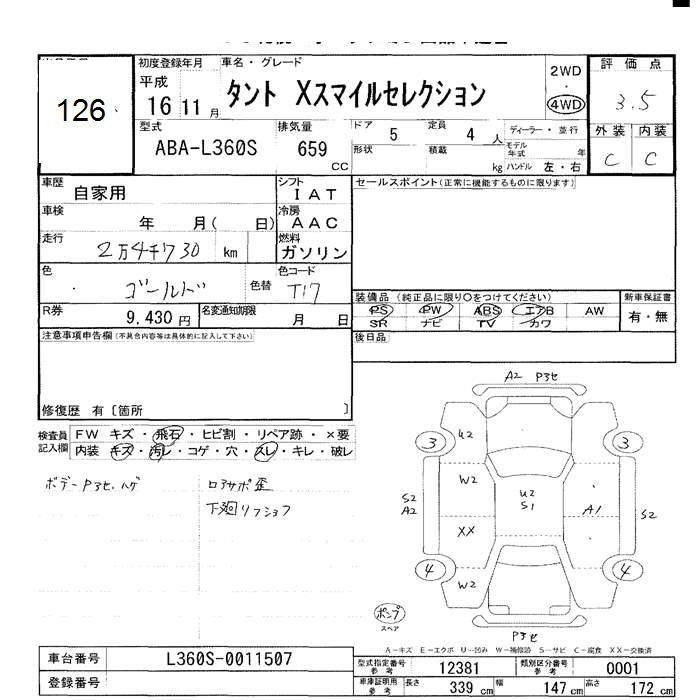 初度登録年月 車名・グレード 2WD 評価点
平成 16 11月 タント Xスマイルセレクション 4WD 3.5
126
型式 ABA-L360S 排気量 659 CC
ドア 5 定員 4 人 ディーラー・並行 外装 内装
形状 積載 kg モデル年式 年 ハンドル 左・右 C C
車歴 自家用 シフト IAT セールスポイント(正常に機能するものに限ります)
車検 年 月( 日) 冷房 AAC
走行 2万4千730 km 燃料 ガソリン
色 ゴールド 色替 色コード T17
装備品 (純正品に限り○をつけてください) 新車保証書
PS PW ABS エアB AW 有・無
SR ナビ TV カワ
R券 9,430円 名変通知期限 月 日
後日品
注意事項申告欄(不具合内容等は具体的に記入して下さい)
修復歴 有〔箇所 〕
検査員記入欄 FW キズ・飛石・ヒビ割・リペア跡・×要
内装 キズ・汚レ・コゲ・穴・スレ・キレ・破レ
ボデーPヨセ、ハゲ ロアサポ歪
下廻リフショフ
A2 Pヨセ
3 U2 3
W2 U2 S1 A1
S2 A2 S2
XX
4 W2 4
ポンプ
スペア
Pヨセ
A-キズ E-エクボ U-凹み W-補修跡 S-サビ C-腐食 XX-交換済
車台番号 L360S-0011507 型式指定番号 参考 12381 類別区分番号 参考 0001
登録番号 車庫証明用 参考 長さ 339 cm 幅 147 cm 高さ 172 cm